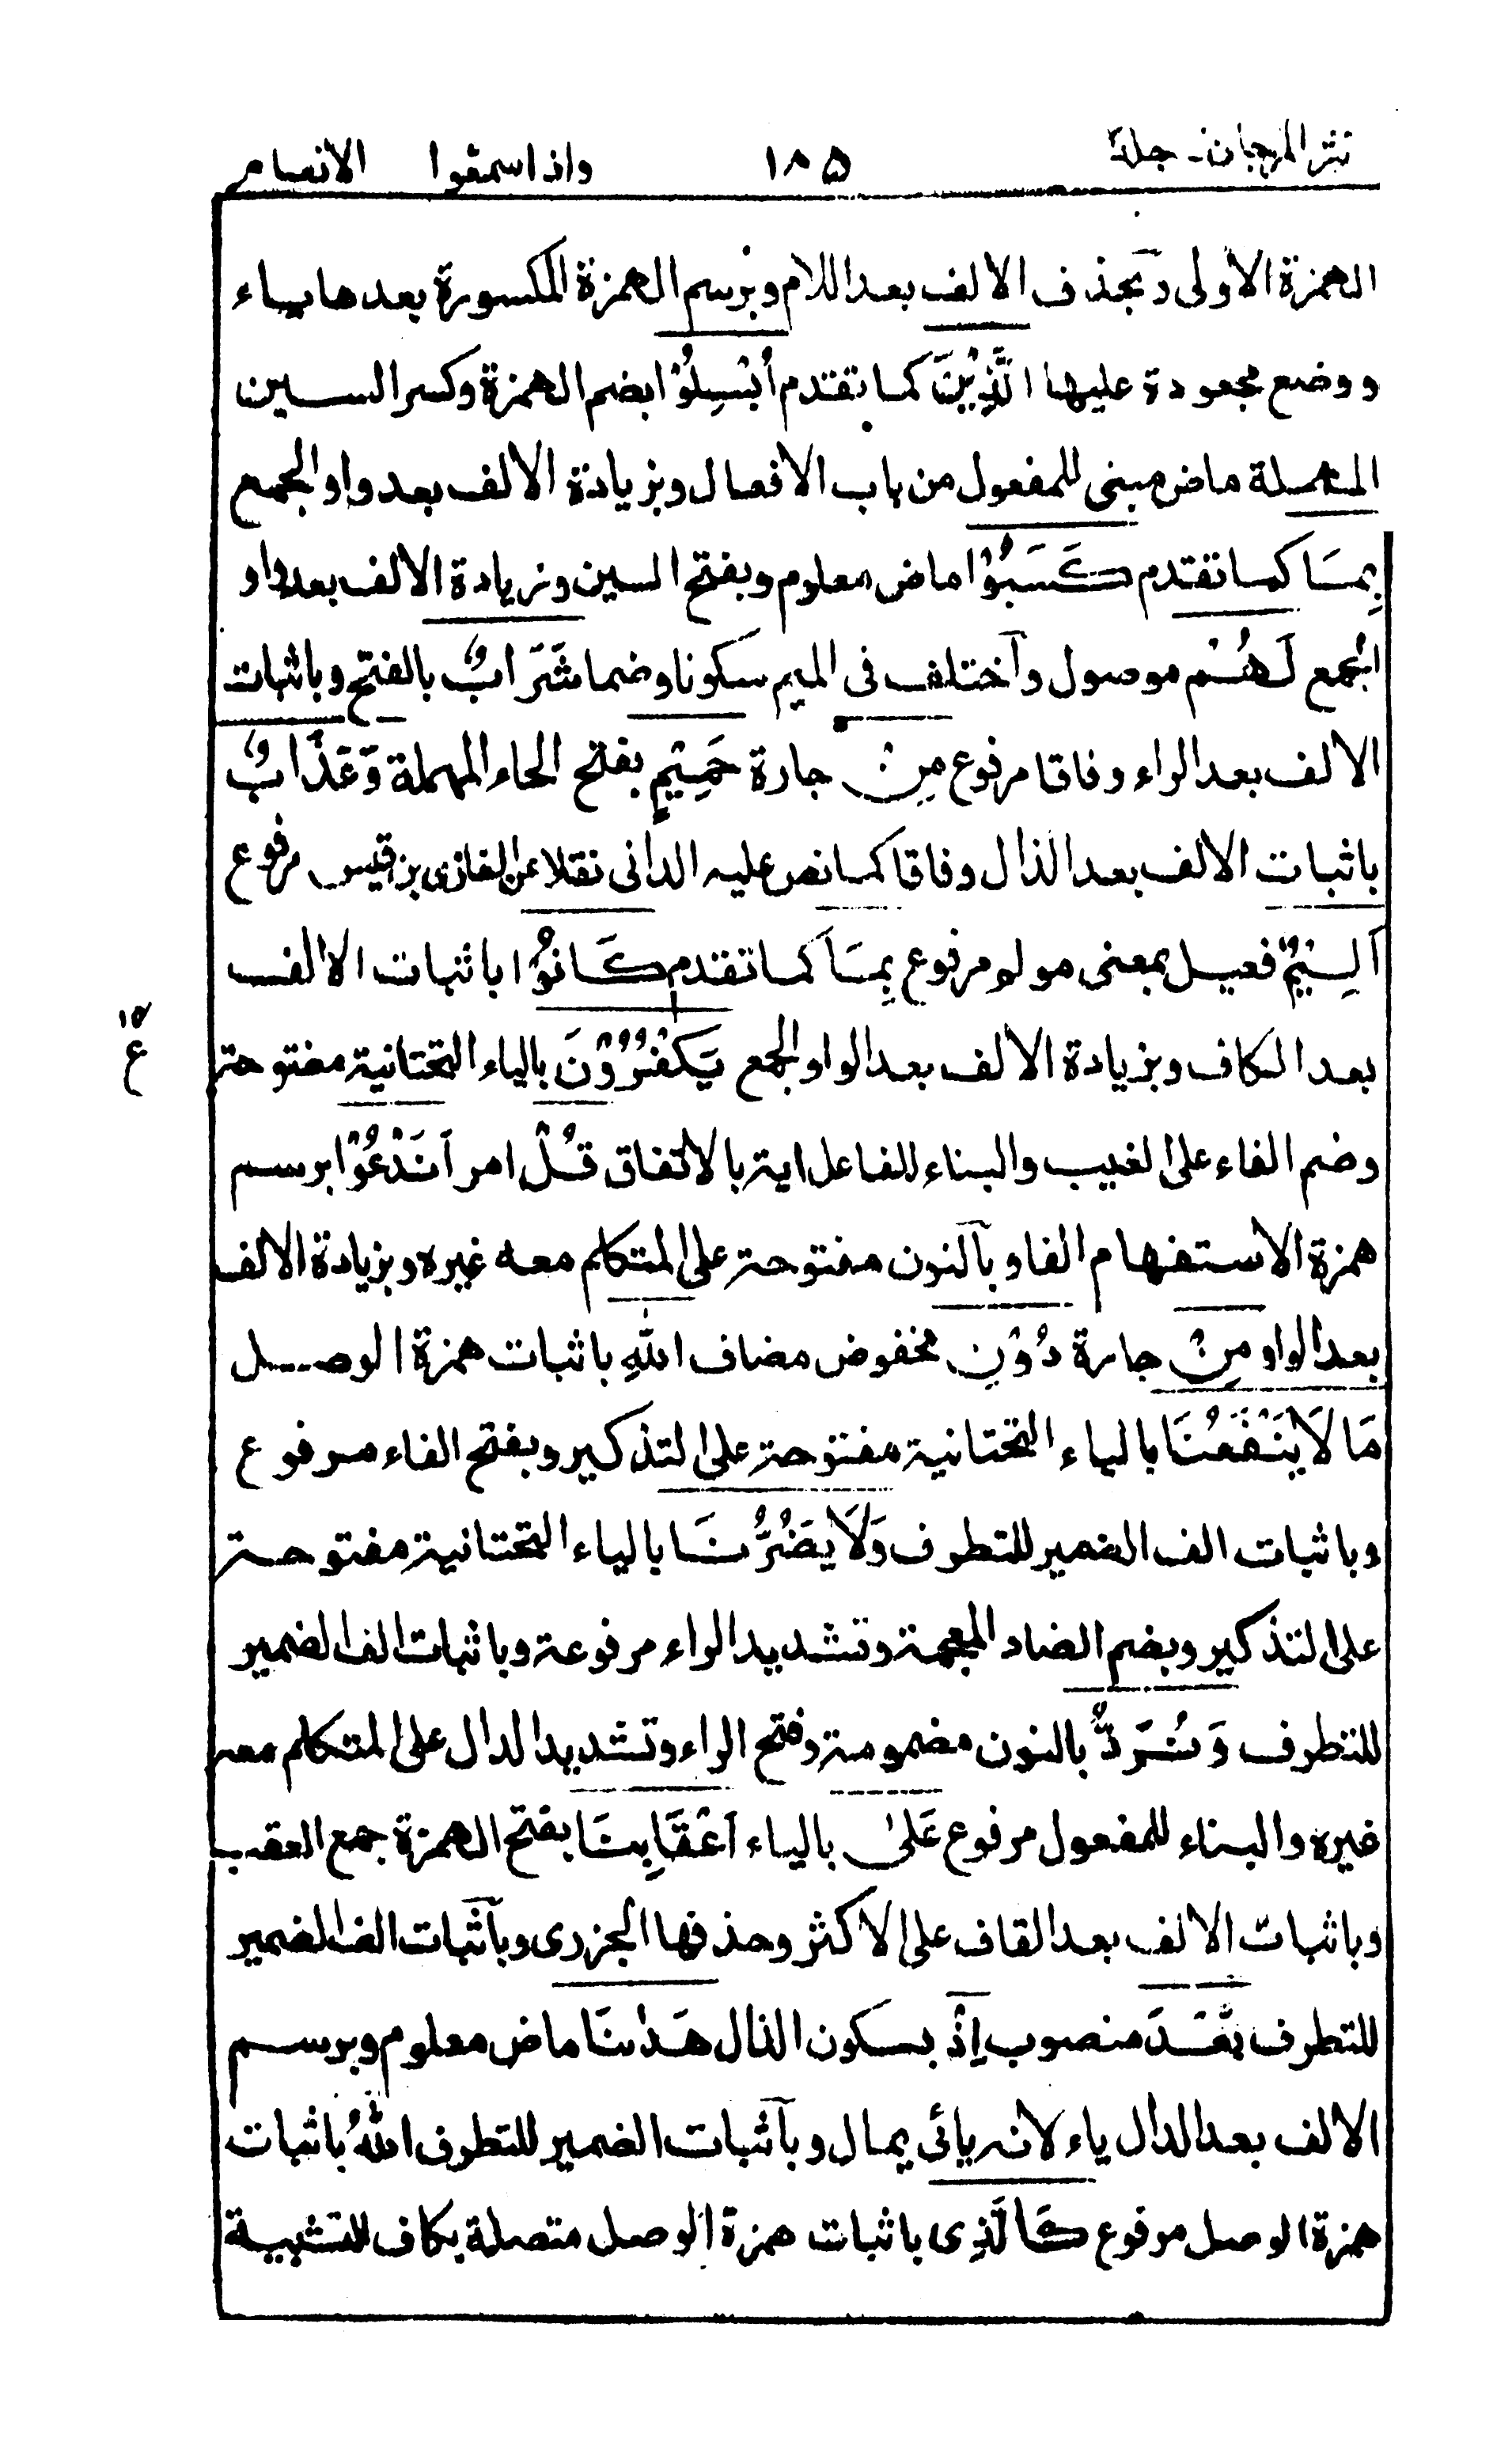 نثر المرجان - جلد ٢ ۱۸۵ واذا سمعوا الانعام
الهمزة الاولى وبحذف الالف بعد اللام وبرسم الهمزة المكسورة بعدها ياء
ووضع مجعودة عليها الَّذِيْنَ كما تقدم اُبْسِلُوْا بضم الهمزة وكسر السين
المهملة ماض مبنى للمفعول من باب الافعال وبزيادة الالف بعد واو الجمع
بِمَا كما تقدم كَسَبُوْا ماض معلوم وبفتح السين وبزيادة الالف بعد واو
الجمع لَهُمْ موصول وآختلف فى الميم سكونا وضما شَرَابٌ بالفتح وباثبات
الالف بعد الراء وفاقا مرفوع مِنْ جارة حَمِيْمٍ بفتح الحاء المهملة وَّعَذَابٌ
باثبات الالف بعد الذال وفاقا كما نص عليه الدانى نقلا عن الغازى بن قيس مرفوع
اَلِيْمٌ فعيل بمعنى مولم مرفوع بِمَا كما تقدم كَانُوْا باثبات الالف
بعد الكاف وبزيادة الالف بعد الواو الجمع يَكْفُرُوْنَ بالياء التحتانية مفتوحة
۱۵
ع
وضم الفاء على الغيب والبناء للفاعل اية بالاتفاق قُلْ امر اَنَدْعُوْا برسم
همزة الاستفهام الفا وبآلنون مفتوحة على المتكلم معه غيره وبزيادة الالف
بعد الواو مِنْ جارة دُوْنِ مخفوض مضاف اللهِ باثبات همزة الوصل
مَا لَا يَنْفَعُنَا بالياء التحتانية مفتوحة على التذكير وبفتح الفاء مرفوع
وباثبات الف الضمير للتطرف وَلَا يَضُرُّنَا بالياء التحتانية مفتوحة
على التذكير وبضم الضاد المعجمة وتشديد الراء مرفوعة وباثبات الف الضمير
للتطرف وَنُرَدُّ بالنون مضمومة وفتح الراء وتشديد الدال على المتكلم معه
غيره والبناء للمفعول مرفوع عَلٰى بالياء اَعْقَابِنَا بفتح الهمزة جمع العقب
وباثبات الالف بعد القاف على الاكثر وحذفها الجزرى وبآثبات الف الضمير
للتطرف بَعْدَ منصوب اِذْ بسكون الذال هَدٰىنَا ماض معلوم وبرسم
الالف بعد الدال ياء لانه يائى يمال وبآثبات الضمير للتطرف اللهُ باثبات
همزة الوصل مرفوع كَالَّذِى باثبات همزة الوصل متصلة بكاف للتشبية